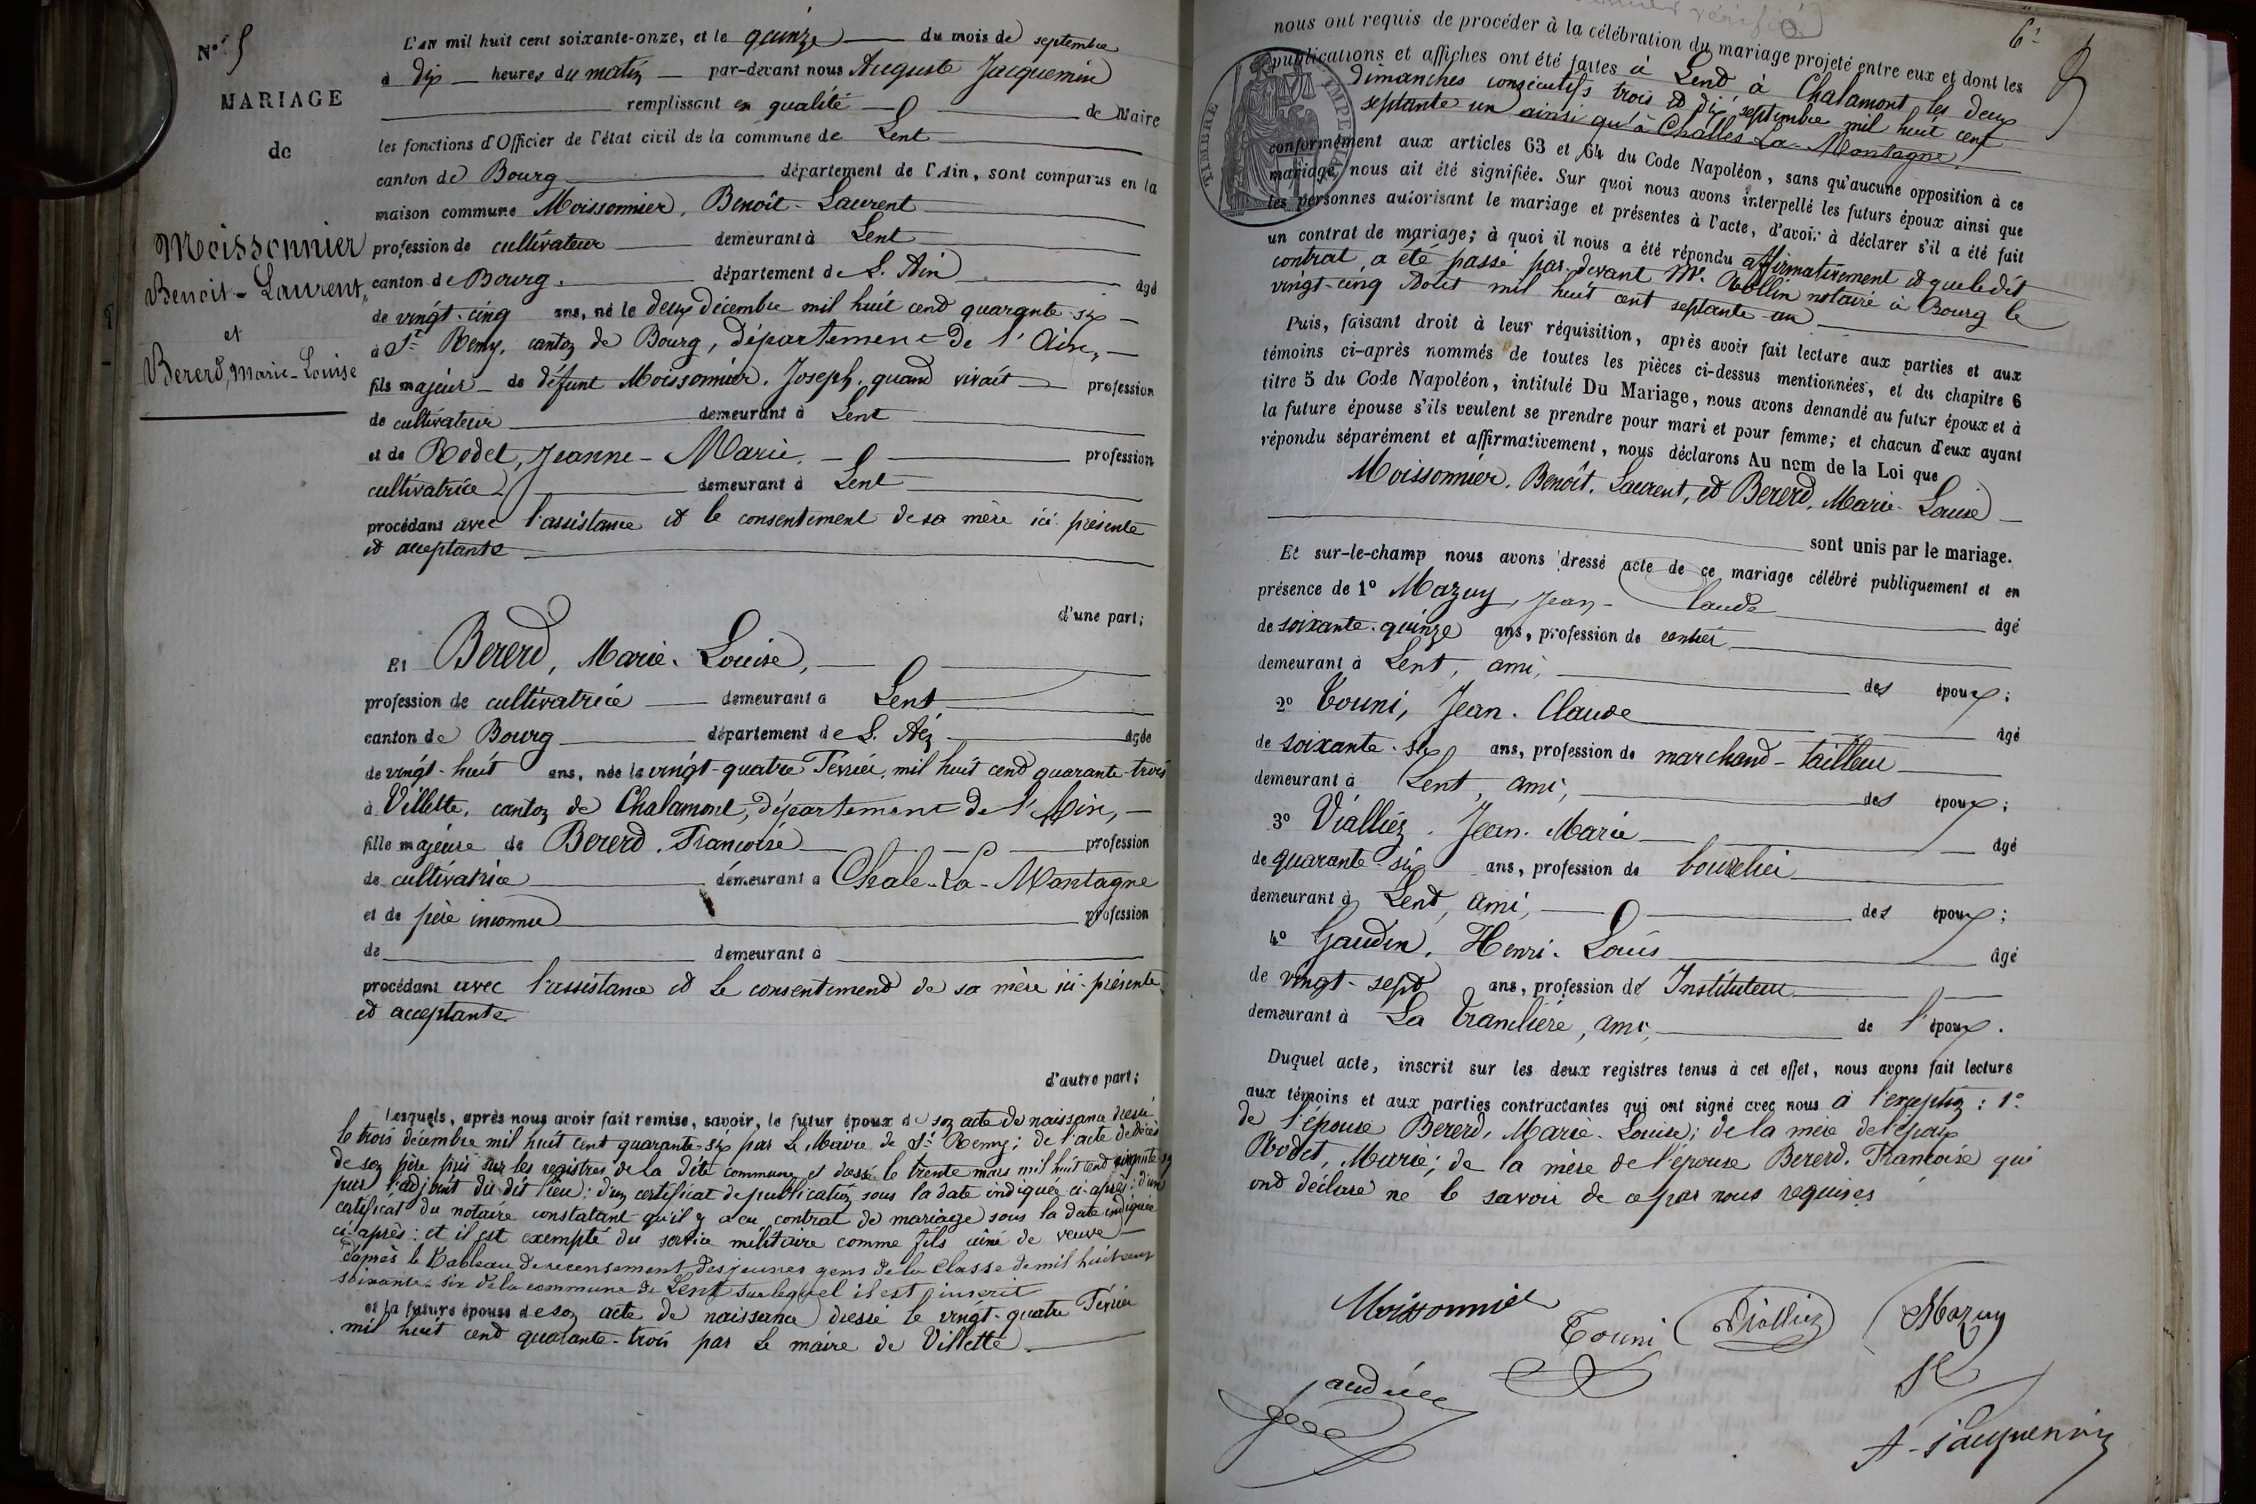 N° 5
MARIAGE
de
Moissonnier
Benoit-Laurent,
et
Bererd, Marie-Louise
L'an mil huit cent soixante-onze, et le quinze du mois de septembre
à dix heures du matin par-devant nous Auguste Jacquemin
remplissant en qualité de Maire
les fonctions d'Officier de l'état civil de la commune de Lent
canton de Bourg département de l'Ain, sont comparus en la
maison commune Moissonnier, Benoît-Laurent
profession de cultivateur demeurant à Lent
canton de Bourg. département de L'Ain âgé
de vingt-cinq ans, né le deux décembre mil huit cend quarante-six
à St Remy, canton de Bourg, département de l'Ain,
fils majeur de défunt Moissonnier, Joseph, quand vivait profession
de cultivateur demeurant à Lent
et de Rodet, Jeanne-Marie. profession
cultivatrice demeurant à Lent
procédant avec l'assistance et le consentement de sa mère ici présente
et acceptante
d'une part;
Et Bererd, Marie-Louise,
profession de cultivatrice demeurant à Lent
canton de Bourg département de L'Ain âgée
de vingt-huit ans, née le vingt-quatre Février mil huit cend quarante-trois
à Villette, canton de Chalamont, département de l'Ain,
fille majeure de Bererd, Françoise profession
de cultivatrice demeurant à Chale-La-Montagne
et de père inconnu profession
de demeurant à
procédant avec l'assistance et le consentement de sa mère ici-présente
et acceptante
d'autre part;
Lesquels, après nous avoir fait remise, savoir, le futur époux de son acte de naissance dressé
le trois décembre mil huit cent quarante-six par Le Maire de St Remy; de l'acte de décès
de son père pris sur les registres de la dite commune et dressé le trente mars mil huit cend cinquante
par l'adjoint du dit lieu; d'un certificat de publication sous la date indiquée ci-après; d'un
certificat du notaire constatant qu'il y a eu contrat de mariage sous la date indiquée
ci-après: et il est exempté du service militaire comme fils aîné de veuve
d'après le Tableau de recensement des jeunes gens de la Classe de mil huit cent
soixante-six de la commune de Lent sur lequel il est inscrit
et la future épouse de son acte de naissance dressé le vingt-quatre Février
mil huit cend quarante-trois par Le maire de Villette.
6
5
nous ont requis de procéder à la célébration du mariage projeté entre eux et dont les
publications et affiches ont été faites à Lend, à Chalamont, les deux
dimanches consécutifs trois et dix septembre mil huit cent
septante un ainsi qu'à Challes-La-Montagne,
TIMBRE IMPERIAL
conformément aux articles 63 et 64 du Code Napoléon, sans qu'aucune opposition à ce
mariage nous ait été signifiée. Sur quoi nous avons interpellé les futurs époux ainsi que
les personnes autorisant le mariage et présentes à l'acte, d'avoir à déclarer s'il a été fait
un contrat de mariage; à quoi il nous a été répondu affirmativement et que ledit
contrat a été passé par devant Me. Rollin notaire à Bourg le
vingt-cinq Août mil huit cent septante-un
Puis, faisant droit à leur réquisition, après avoir fait lecture aux parties et aux
témoins ci-après nommés de toutes les pièces ci-dessus mentionnées, et du chapitre 6
titre 5 du Code Napoléon, intitulé Du Mariage, nous avons demandé au futur époux et à
la future épouse s'ils veulent se prendre pour mari et pour femme; et chacun d'eux ayant
répondu séparément et affirmativement, nous déclarons Au nom de la Loi que
Moissonnier, Benoît-Laurent, et Bererd, Marie-Louise
sont unis par le mariage.
Et sur-le-champ nous avons dressé acte de ce mariage célébré publiquement et en
présence de 1° Mazuy, Jean-Claude âgé
de soixante-quinze ans, profession de rentier
demeurant à Lent, ami, des époux;
2° Touni, Jean-Claude âgé
de soixante-six ans, profession de marchand-tailleur
demeurant à Lent, ami, des époux;
3° Vialliez, Jean-Marie âgé
de quarante-six ans, profession de bourrelier
demeurant à Lend, ami, des époux;
4° Gaudin, Henri-Louis âgé
de vingt-sept ans, profession de Instituteur
demeurant à La Tranclière, ami, de l'époux.
Duquel acte, inscrit sur les deux registres tenus à cet effet, nous avons fait lecture
aux témoins et aux parties contractantes qui ont signé avec nous à l'exception: 1°
de l'épouse Bererd, Marie-Louise; de la mère de l'époux
Rodet, Marie; de la mère de l'épouse Bererd, Françoise qui
ond déclaré ne le savoir de ce par nous requises
Moissonnier
Touni
Vialliez
Mazuy
Gaudin
A. Jacquemin